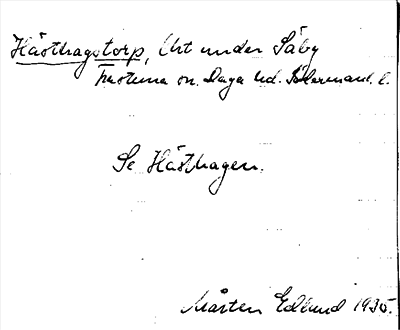 Hästhagstorp, Urt under Säby
Frustuna sn. Daga hd. Södermanl. l.
Se Hästhagen.
Mårten Edlund 1935.